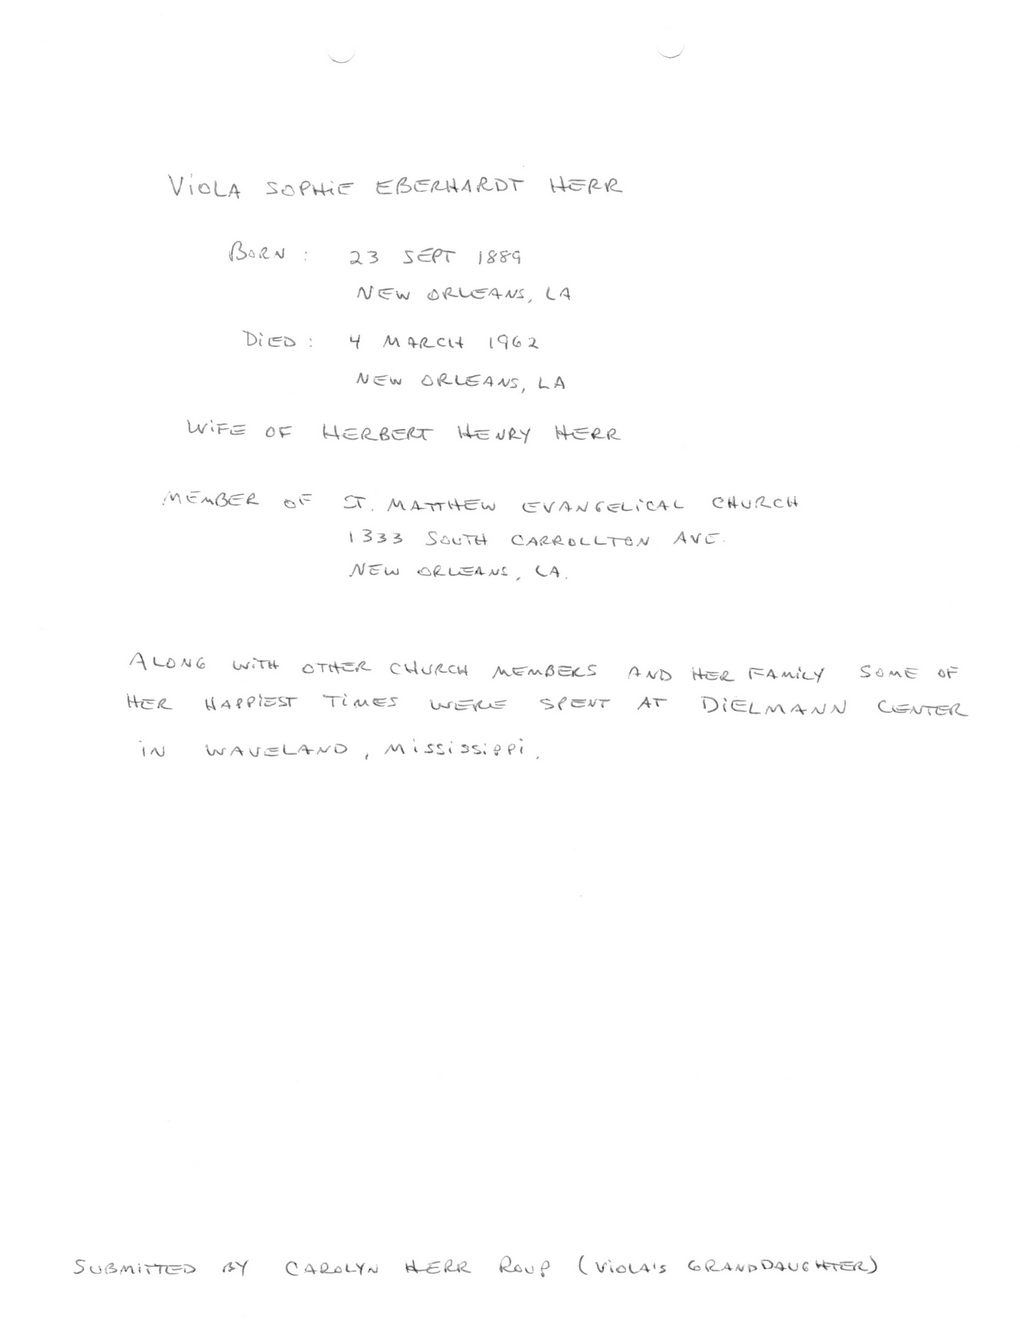 Viola Sophie Eberhardt Herr
Born : 23 Sept 1889
New Orleans, LA
Died : 4 March 1962
New Orleans, LA
Wife of Herbert Henry Herr
Member of St. Matthew Evangelical Church
1333 South Carrollton Ave.
New Orleans, LA.
Along with other church members and her family some of
her happiest times were spent at Dielmann Center
in Waveland, Mississippi.
Submitted by Carolyn Herr Roup (Viola's granddaughter)